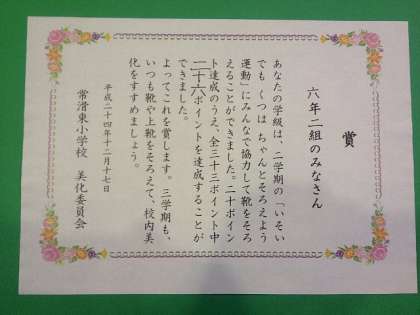 賞
六年二組のみなさん
あなたの学級は、二学期の「いそい
でも くつは ちゃんとそろえよう
運動」にみんなで協力して靴をそろ
えることができました。二十ポイン
ト達成のうえ、全三十三ポイント中
二十六ポイントを達成することが
できました。
よってこれを賞します。三学期も、
いつも靴や上靴をそろえて、校内美
化をすすめましょう。
平成二十四年十二月十七日
常滑東小学校 美化委員会